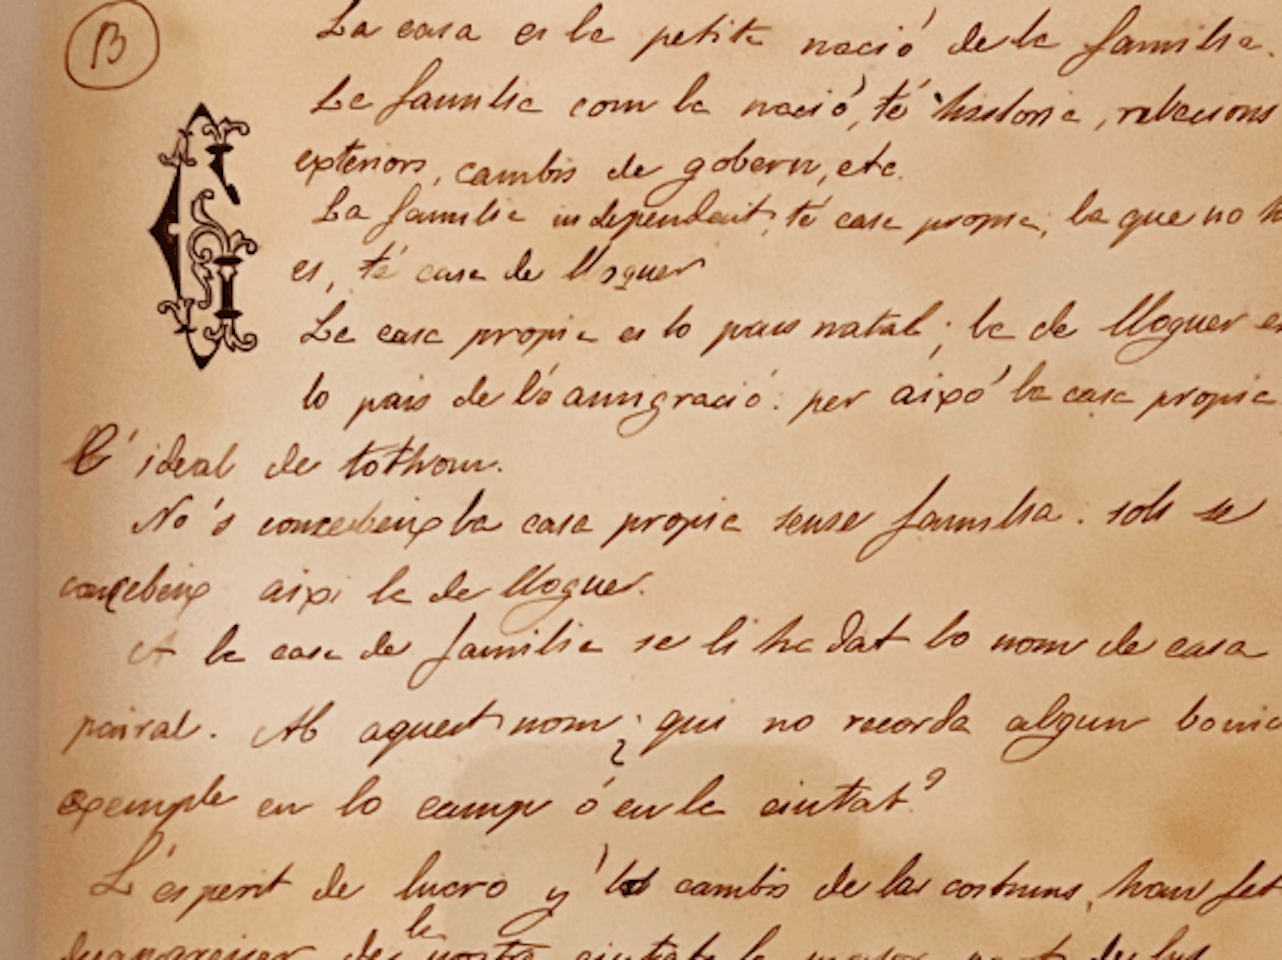 B
La casa es la petita nació de la familia.
La familia com la nació, té historia, relacions
exteriors, cambis de gobern, etc.
La familia independent, té casa propia, la que no h
es, té casa de lloguer
La casa propia es lo pais natal; la de lloguer es
lo pais de la amigració: per aixó la casa propia
l' ideal de tothom.
No 's concebeix la casa propia sense familia: sols se
concebeix aixi la de lloguer.
A la casa de familia se li ha dat lo nom de casa
pairal. Ab aquest nom ¿qui no recorda algun bonic
exemple en lo camp ó en la ciutat?
L' esperit de lucro y los cambis de las costums, han fet
la
desapareixer de nostra ciutat la major part de las